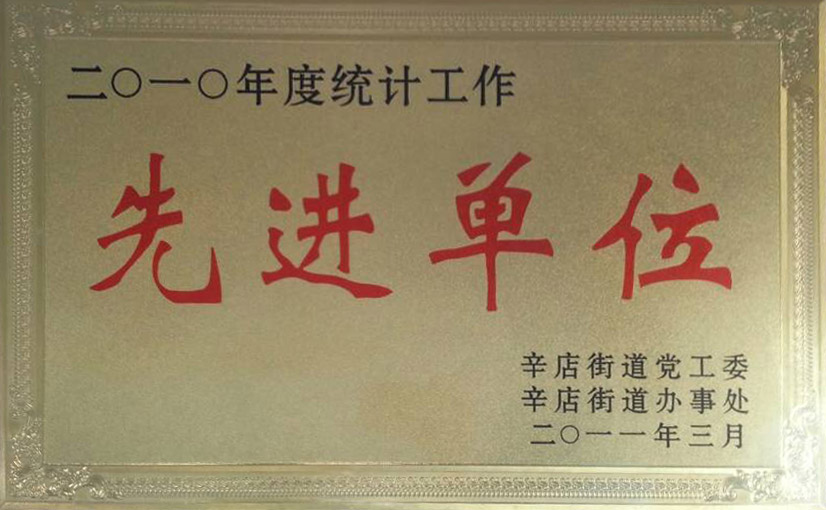 二〇一〇年度统计工作
先进单位
辛店街道党工委
辛店街道办事处
二〇一一年三月